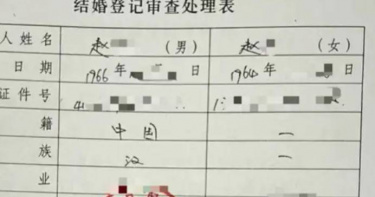 结婚登记审查处理表
人姓名 赵 (男) 赵 (女)
日期 1966年 日 1964年 日
证件号 4
籍 中国 一
族 汉 一
业